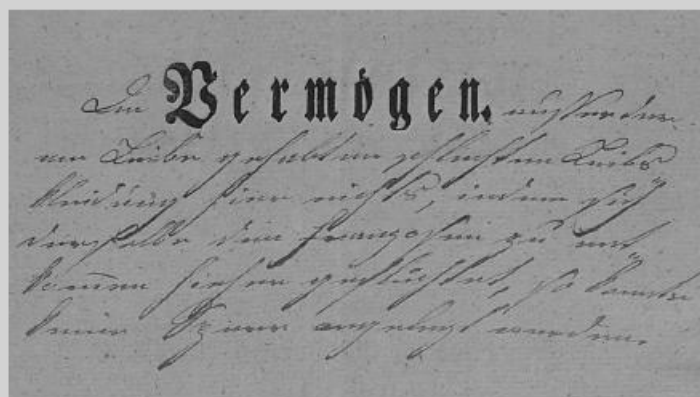 An Vermögen, ausser der
am Leibe gehabten schlechten Leibs
kleidung hier nichts, indem sich
derselbe den Franzosen zu ent
kommen hieher geflüchtet, so konnte
keine Spärr angelegt werden.